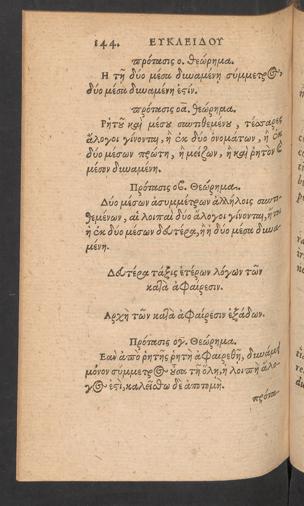 144. ΕΥΚΛΕΙΔΟΥ
πρότασις ο. θεώρημα.
Η τῇ δύο μέσα δυναμένη σύμμετρος,
δύο μέσα δυναμένη ἐστίν.
πρότασις οα. θεώρημα.
Ρητοῦ καὶ μέσου συντιθεμένου, τέσσαρες
ἄλογοι γίνονται, ἢ ἐκ δύο ὀνομάτων, ἢ ἐκ
δύο μέσων πρώτη, ἢ μείζων, ἢ καὶ ῥητὸν καὶ
μέσον δυναμένη.
Πρότασις οβ. Θεώρημα.
Δύο μέσων ἀσυμμέτρων ἀλλήλοις συντι-
θεμένων, αἱ λοιπαὶ δύο ἄλογοι γίνονται, ἤτοι
ἡ ἐκ δύο μέσων δευτέρα, ἢ ἡ δύο μέσα δυνα-
μένη.
Δευτέρα τάξις ἑτέρων λόγων τῶν
κατὰ ἀφαίρεσιν.
Αρχὴ τῶν κατὰ ἀφαίρεσιν ἑξάδων.
Πρότασις ογ. Θεώρημα.
Εαν ἀπὸ ῥητῆς ῥητὴ ἀφαιρεθῇ, δυνάμει
μόνον σύμμετρος οὖσα τῇ ὅλῃ, ἡ λοιπὴ ἄλο-
γός ἐστι, καλείσθω δὲ ἀποτομή.
πρότα-